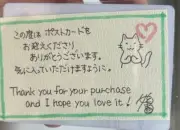 この度は ポストカードを
お迎えくださり
ありがとうございます。
気に入っていただけますように。
Thank you for your purchase
and I hope you love it!